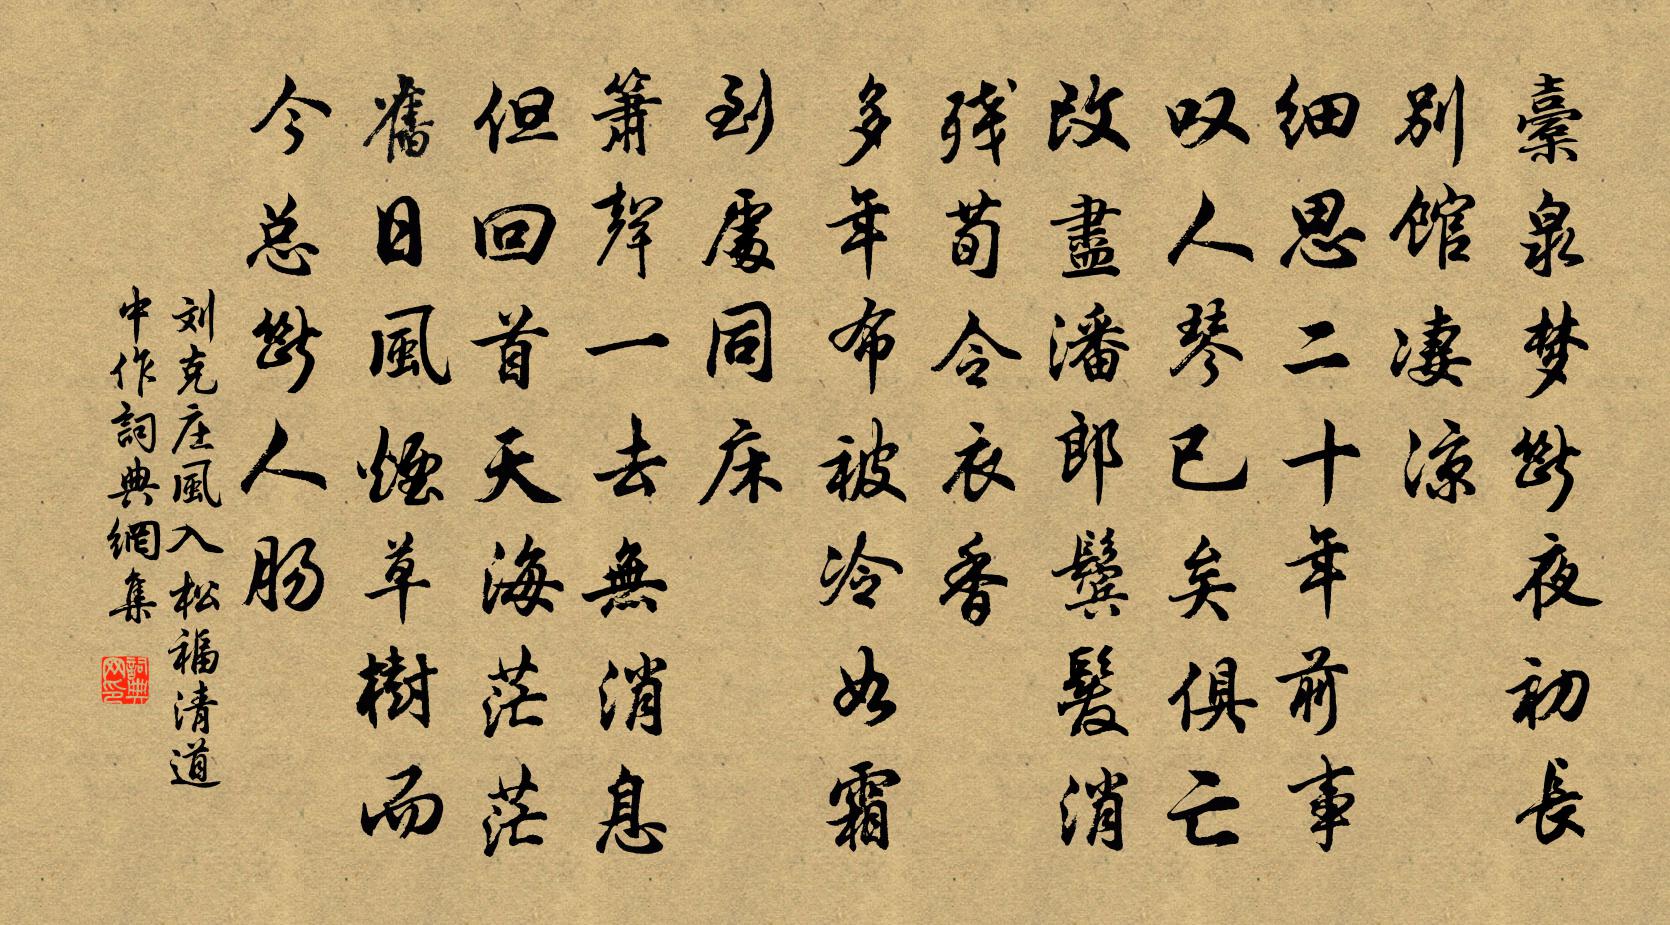 橐泉梦断夜初長
别館凄凉
细思二十年前事
叹人琴已矣俱亡
改盡潘郎鬓髮消
残荀令衣香
多年布被冷如霜
到處同床
箫聲一去無消息
但回首天海茫茫
舊日風煙草樹而
今总断人肠
刘克庄風入松福清道
中作詞典網集
詞典网印